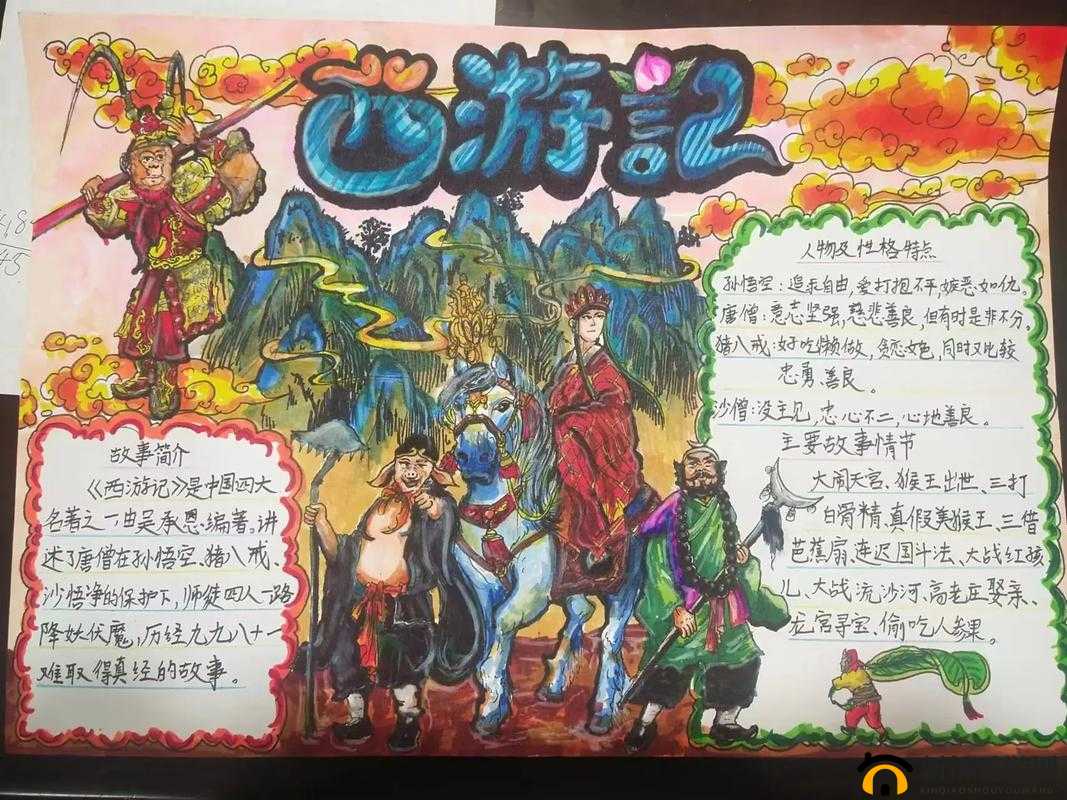 西游記
故事简介
《西游记》是中国四大
名著之一由吴承恩编著,讲
述了唐僧在孙悟空、猪八戒、
沙悟净的保护下,师徒四人一路
降妖伏魔,历经九九八十一
难取得真经的故事。
人物及性格特点
孙悟空:追求自由,爱打抱不平,嫉恶如仇。
唐僧:意志坚强,慈悲善良,但有时是非不分。
猪八戒:好吃懒做,贪恋女色,同时又比较
忠勇、善良。
沙僧:没主见,忠心不二,心地善良。
主要故事情节
大闹天宫、猴王出世、三打
白骨精、真假美猴王、三借
芭蕉扇、连迟国斗法、大战红孩
儿、大战流沙河、高老庄娶亲、
龙宫寻宝、偷吃人参果。
45
XINQIAOSHOUYOUWANG